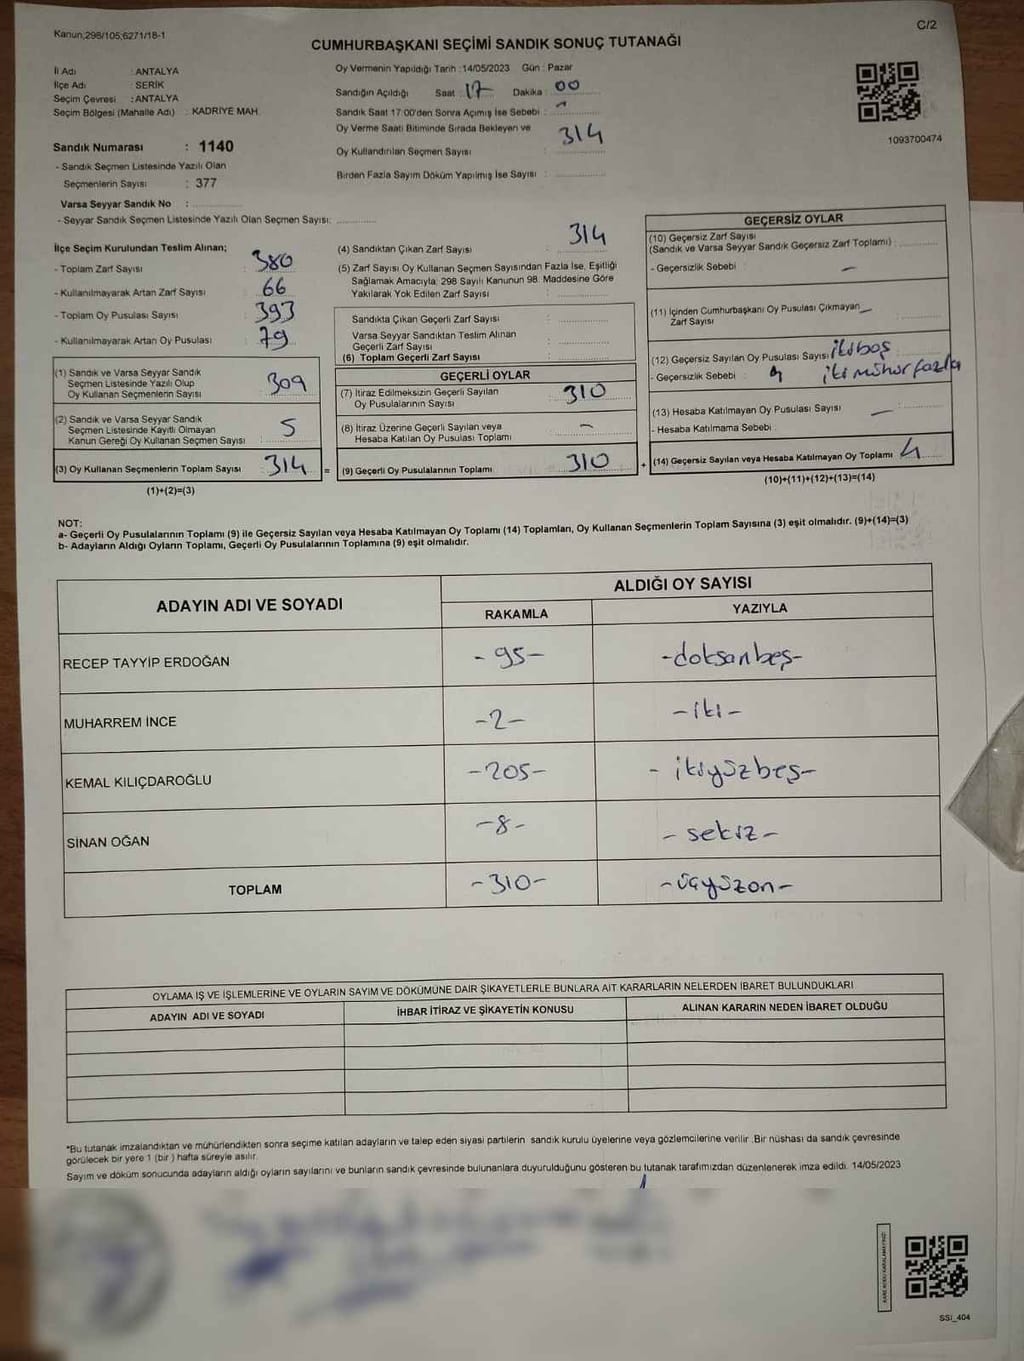 Kanun;298/105;6271/18-1
C/2
CUMHURBAŞKANI SEÇİMİ SANDIK SONUÇ TUTANAĞI
İl Adı : ANTALYA
İlçe Adı : SERİK
Seçim Çevresi : ANTALYA
Seçim Bölgesi (Mahalle Adı) : KADRİYE MAH.
Sandık Numarası : 1140
- Sandık Seçmen Listesinde Yazılı Olan
Seçmenlerin Sayısı : 377
Varsa Seyyar Sandık No :
- Seyyar Sandık Seçmen Listesinde Yazılı Olan Seçmen Sayısı:
Oy Vermenin Yapıldığı Tarih : 14/05/2023 Gün : Pazar
Sandığın Açıldığı Saat : 17 Dakika : 00
Sandık Saat 17:00'den Sonra Açımış İse Sebebi :
Oy Verme Saati Bitiminde Sırada Bekleyen ve
Oy Kullandırılan Seçmen Sayısı : 314
Birden Fazla Sayım Döküm Yapılmış İse Sayısı :
1093700474
İlçe Seçim Kurulundan Teslim Alınan;
- Toplam Zarf Sayısı : 380
- Kullanılmayarak Artan Zarf Sayısı : 66
- Toplam Oy Pusulası Sayısı : 393
- Kullanılmayarak Artan Oy Pusulası : 79
(1) Sandık ve Varsa Seyyar Sandık
Seçmen Listesinde Yazılı Olup
Oy Kullanan Seçmenlerin Sayısı : 309
(2) Sandık ve Varsa Seyyar Sandık
Seçmen Listesinde Kayıtlı Olmayan
Kanun Gereği Oy Kullanan Seçmen Sayısı : 5
(3) Oy Kullanan Seçmenlerin Toplam Sayısı : 314 =
(1)+(2)=(3)
(4) Sandıktan Çıkan Zarf Sayısı : 314
(5) Zarf Sayısı Oy Kullanan Seçmen Sayısından Fazla İse, Eşitliği
Sağlamak Amacıyla; 298 Sayılı Kanunun 98. Maddesine Göre
Yakılarak Yok Edilen Zarf Sayısı :
Sandıkta Çıkan Geçerli Zarf Sayısı :
Varsa Seyyar Sandıktan Teslim Alınan
Geçerli Zarf Sayısı :
(6) Toplam Geçerli Zarf Sayısı :
GEÇERLİ OYLAR
(7) İtiraz Edilmeksizin Geçerli Sayılan
Oy Pusulalarının Sayısı : 310
(8) İtiraz Üzerine Geçerli Sayılan veya
Hesaba Katılan Oy Pusulası Toplamı : -
(9) Geçerli Oy Pusulalarının Toplamı : 310 +
GEÇERSİZ OYLAR
(10) Geçersiz Zarf Sayısı
(Sandık ve Varsa Seyyar Sandık Geçersiz Zarf Toplamı) :
- Geçersizlik Sebebi : -
(11) İçinden Cumhurbaşkanı Oy Pusulası Çıkmayan -
Zarf Sayısı
(12) Geçersiz Sayılan Oy Pusulası Sayısı : iki boş
- Geçersizlik Sebebi : 4 iki mühür fazla
(13) Hesaba Katılmayan Oy Pusulası Sayısı : -
- Hesaba Katılmama Sebebi :
(14) Geçersiz Sayılan veya Hesaba Katılmayan Oy Toplamı : 4
(10)+(11)+(12)+(13)=(14)
NOT:
a- Geçerli Oy Pusulalarının Toplamı (9) ile Geçersiz Sayılan veya Hesaba Katılmayan Oy Toplamı (14) Toplamları, Oy Kullanan Seçmenlerin Toplam Sayısına (3) eşit olmalıdır. (9)+(14)=(3)
b- Adayların Aldığı Oyların Toplamı, Geçerli Oy Pusulalarının Toplamına (9) eşit olmalıdır.
ADAYIN ADI VE SOYADI
ALDIĞI OY SAYISI
RAKAMLA YAZIYLA
RECEP TAYYİP ERDOĞAN -95- -doksanbeş-
MUHARREM İNCE -2- -iki-
KEMAL KILIÇDAROĞLU -205- -ikiyüzbeş-
SİNAN OĞAN -8- -sekiz-
TOPLAM -310- -üçyüzon-
OYLAMA İŞ VE İŞLEMLERİNE VE OYLARIN SAYIM VE DÖKÜMÜNE DAİR ŞİKAYETLERLE BUNLARA AİT KARARLARIN NELERDEN İBARET BULUNDUKLARI
ADAYIN ADI VE SOYADI İHBAR İTİRAZ VE ŞİKAYETİN KONUSU ALINAN KARARIN NEDEN İBARET OLDUĞU
*Bu tutanak imzalandıktan ve mühürlendikten sonra seçime katılan adayların ve talep eden siyasi partilerin sandık kurulu üyelerine veya gözlemcilerine verilir. Bir nüshası da sandık çevresinde
görülecek bir yere 1 (bir ) hafta süreyle asılır.
Sayım ve döküm sonucunda adayların aldığı oyların sayılarını ve bunların sandık çevresinde bulunanlara duyurulduğunu gösteren bu tutanak tarafımızdan düzenlenerek imza edildi. 14/05/2023
SSİ_404